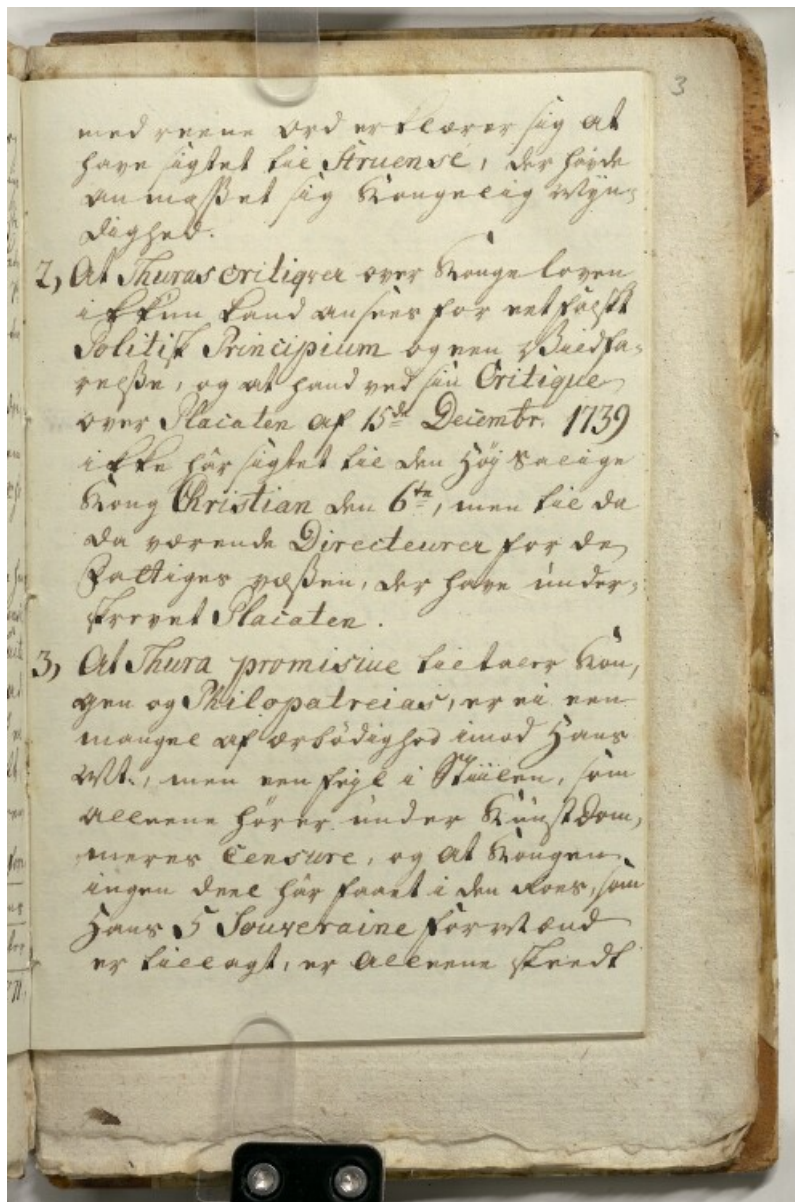 3
med reene ord erklærer sig at
have sigtet til Struensé, der havde
anmasset sig Kongelig Myn-
dighed.
2, At Thuras critiqver over Kongeloven
ikkun kand ansees for eet falskt
Politisk Principium og een Vildfa-
relse, og at hand ved sin Critique
over Placaten af 15de Decembr. 1739
ikke har sigtet til den Høj Salige
Kong Christian den 6te, men til da
da værende Directeurer for de
Fattiges væsen, der have under-
skrevet Placaten.
3, At Thura promisiue tiltaler Kon-
gen og Philopatreias, er ei een
mangel af ærbødighed imod Hans
Mt., men een fejl i Stiilen, som
alleene hører under Kunstdom-
meres Censure, og at Kongen
ingen deel har faaet i den Roes, som
Hans 5 Souveraine Formænd
er tillagt, er alleene skeedt